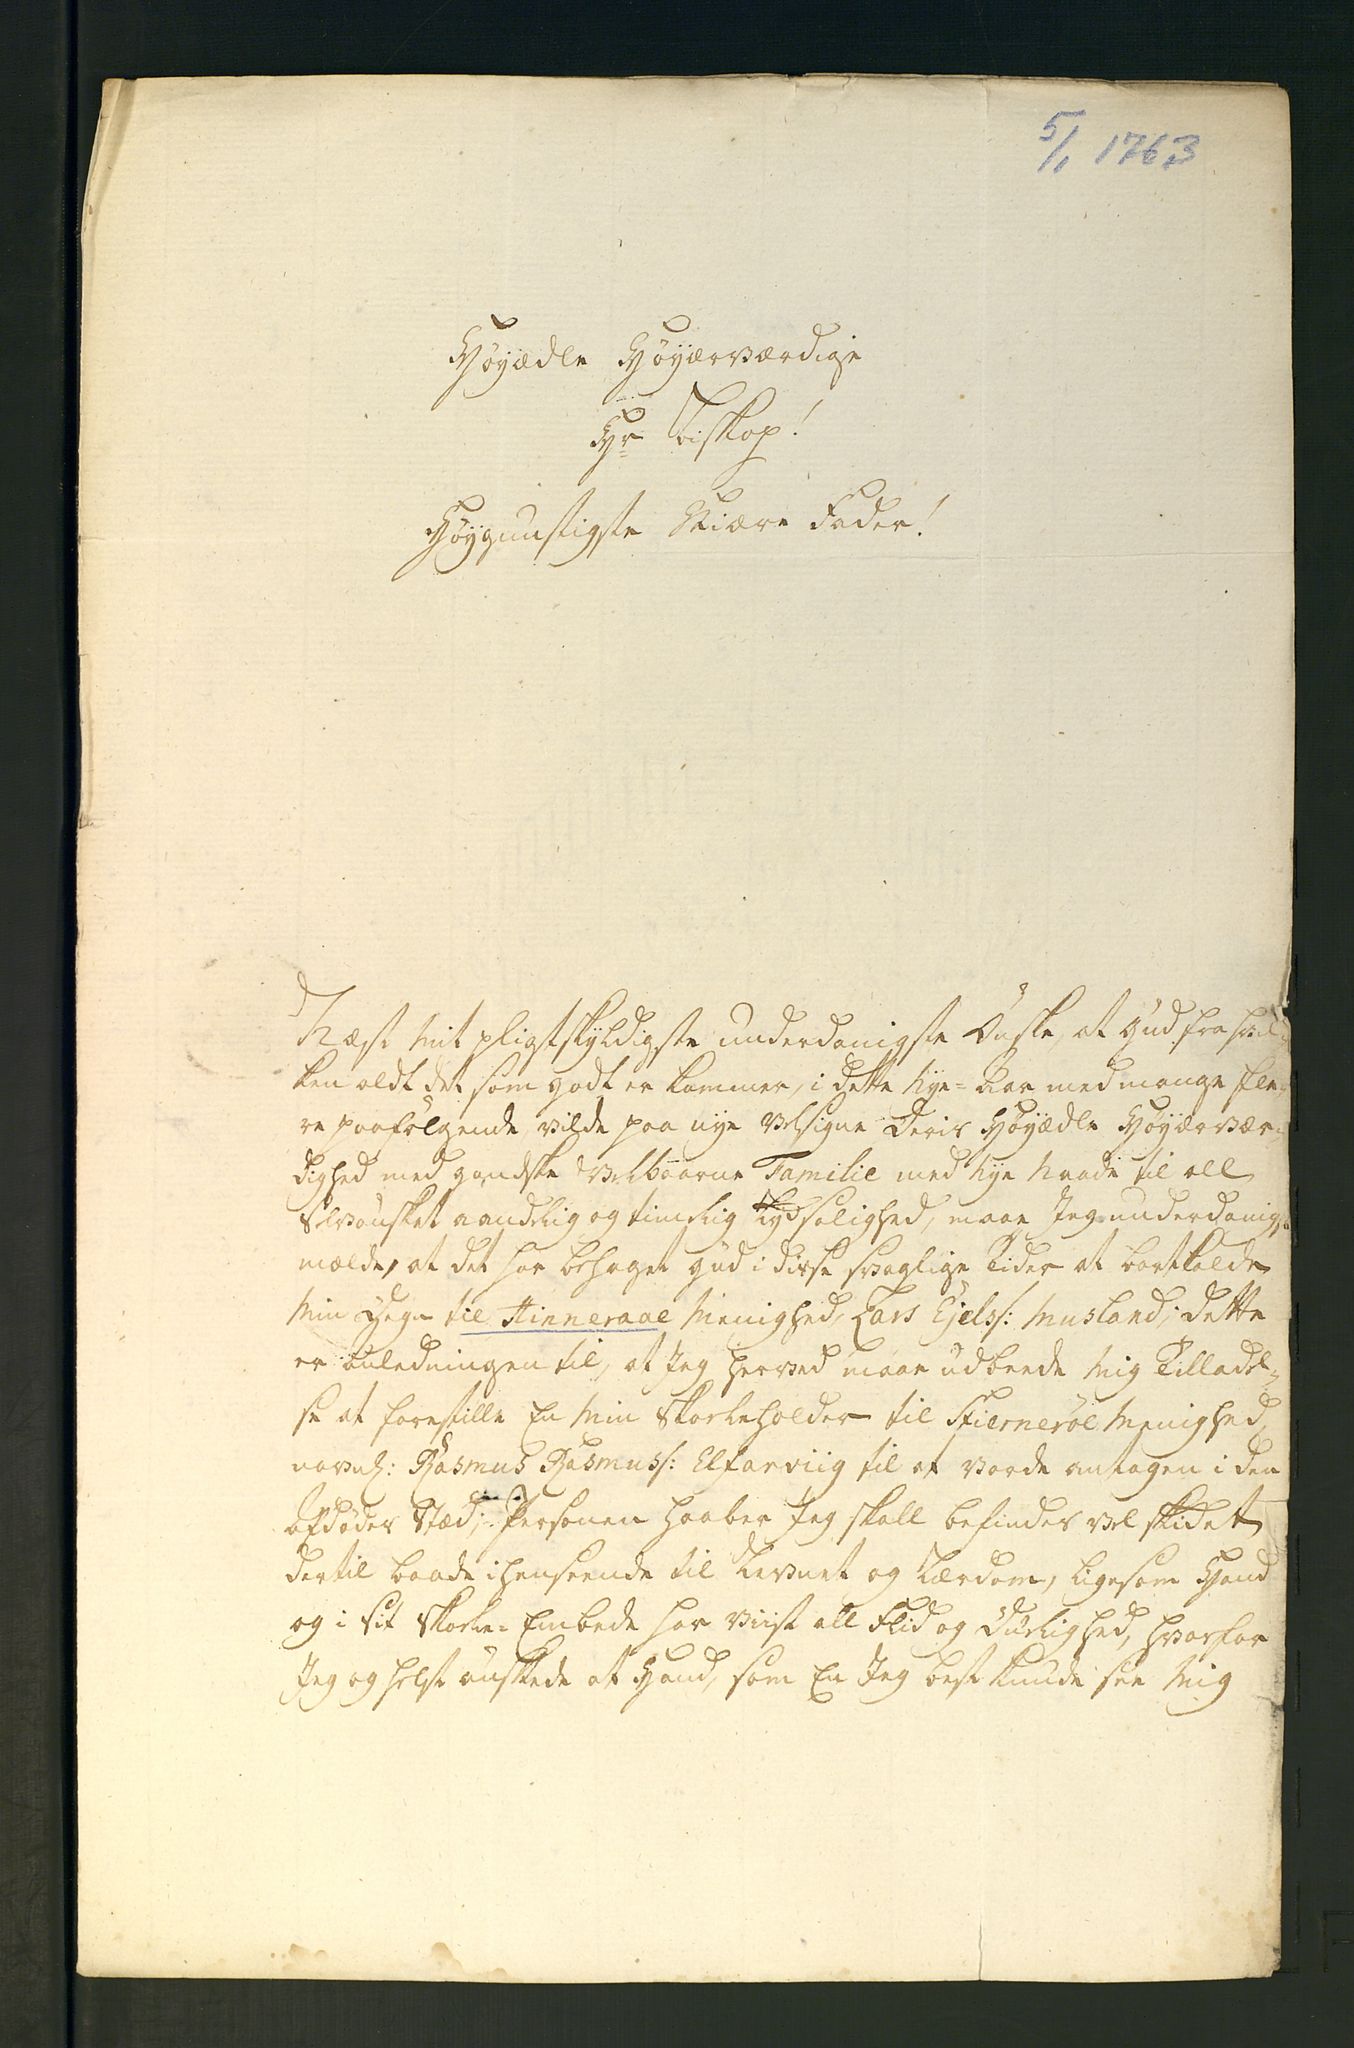 5/1 1763
Høyædle Høyærværdige
Hr Biskop!
Høygunstigste Kiære Fader!
Næst Mit pligtskyldigste underdanigste Ønske, at Gud fra hvil-
ken aldt det som godt er kommer, i dette Nye=Aar med mange fle-
re paafølgende, vilde paa nye Velsigne Deris Høyædle Høyærvær-
dighed med gandske Velbaarne Familie med Nye Naade til all
Selvønsket aandelig og timelig Lyksalighed, maae Jeg underdanigst
mælde, at det har behaget Gud i disse svaglige Tider at bortkalde
Min Degn til Hinneraae Menighed, Lars Ejels: Musland; dette
er anledningen til, at Jeg herved maae udbeede Mig Tilladel-
se at forestille En Min Skoeleholder til Stiernerøe Menighed
navnl: Rasmus Rasmuss: Elfarviig til at vorde antagen i den
afdødes Stæd; Personen haaber Jeg skall befindes vel skicket
dertil baade i henseende til Levnet og Lærdom, ligesom Hand
og i Sit Skoele-Embede har viist all Flid og Duelighed, hvorfor
Jeg og helst ønskede at Hand, som En Jeg best kunde see Mig